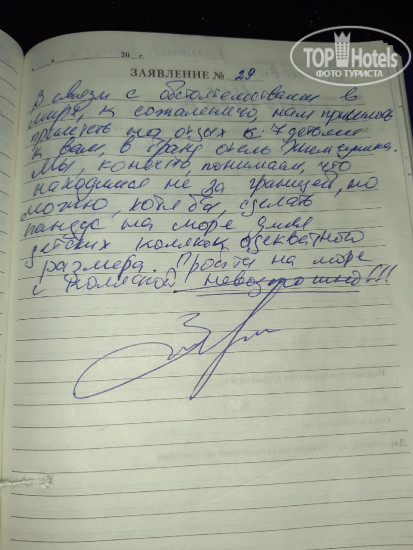 TOPHotels
ФОТО ТУРИСТА
20 г.
ЗАЯВЛЕНИЕ № 29
В связи с обстоятельствами в
мире, к сожалению, нам пришлось
приехать на отдых с 7 детьми
к вам, в гранд отель Жемчужина.
Мы, конечно, понимаем, что
находимся не за границей, но
можно, хотя бы, сделать
пандус на море для
детских колясок адекватного
размера. Пройти на море
с коляской невозможно!!!